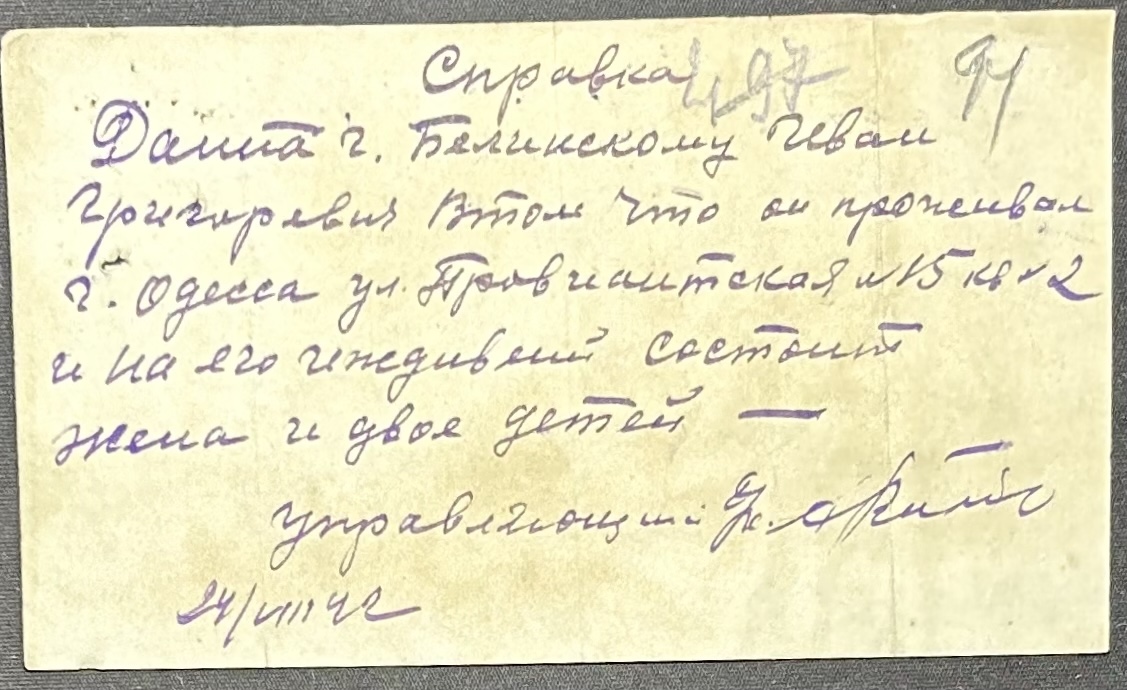 Справка 91
Данна г. Белинскому Иван
Григоревич Втом что он проживал
г. Одесса ул. Провиантская №15 кв №2
и на его иждивений состоит
жена и двое детей —
управляющий
24/VIII 42